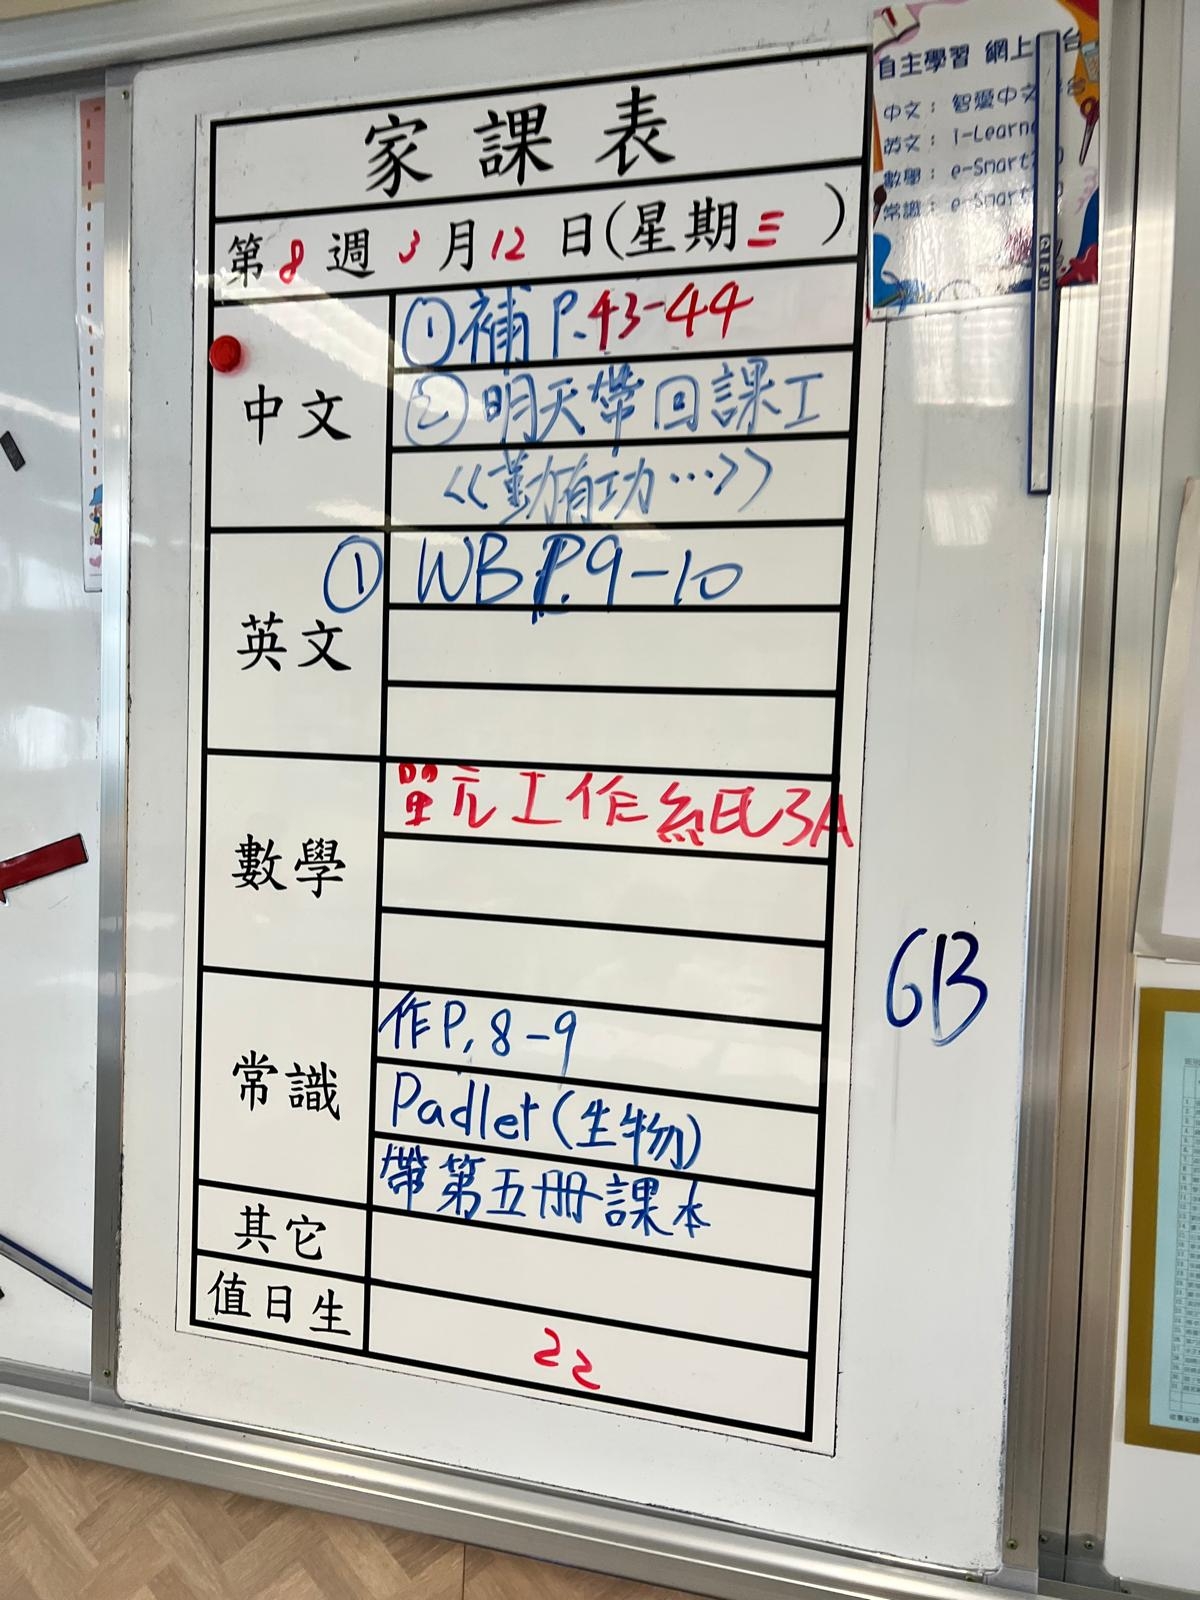 家課表
第8週3月12日(星期三)
中文
①補P.43-44
②明天帶回課工
<<勤有功…>>
英文
① WB P.9-10
數學
單元工作紙EU3A
常識
作P.8-9
Padlet(生物)
帶第五冊課本
其它
值日生
22
6B
自主學習 網上 台
中文：智愛中文 台
英文：i-Learn
數學：e-Smart
常識：e-Smart
GIFU